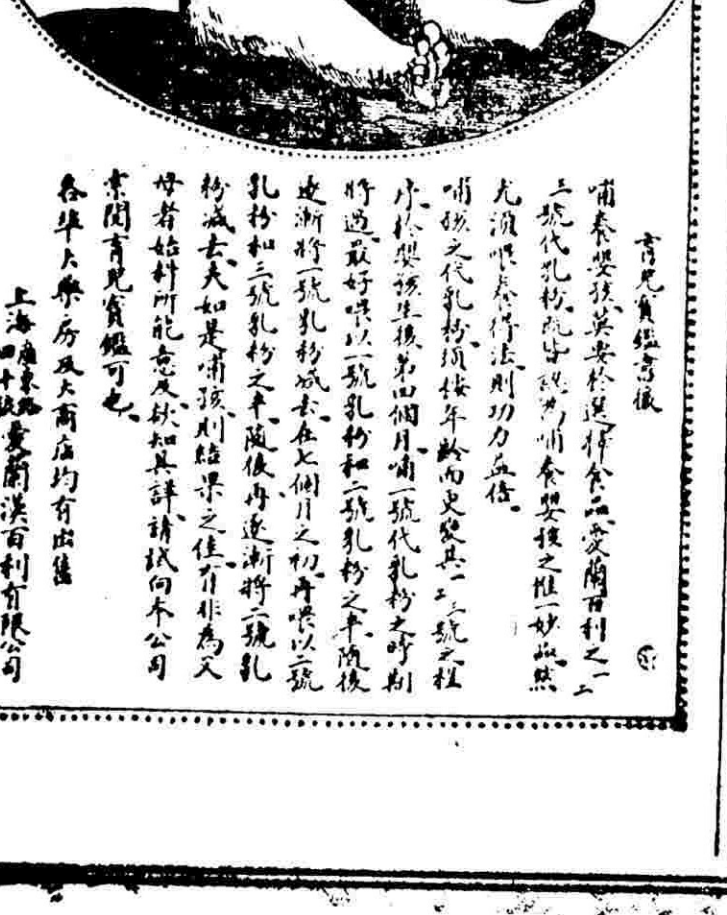 育兒寶鑑言撮
哺養嬰孩、莫要於選擇食品、愛蘭百利之一二
三號代乳粉、既皆認為哺養嬰孩之惟一妙品、然
尤須喂養得法、則功力益倍。
哺孩之代乳粉、須按年齡而更變其一二三號之程
序、於嬰孩生後、第四個月、哺一號代乳粉之時期
將過、最好喂以一號乳粉和二號乳粉之半、隨後
逐漸將一號乳粉減去、在七個月之初、再喂以二號
乳粉和三號乳粉之半、隨後再逐漸將二號乳
粉減去、夫如是哺孩、則結果之佳、有非為父
母者始料所能意及、欲知其詳、請試向本公司
索閱育兒寶鑑可也、
各埠大藥房及大商店均有出售
上海廣東路四十號愛蘭漢百利有限公司